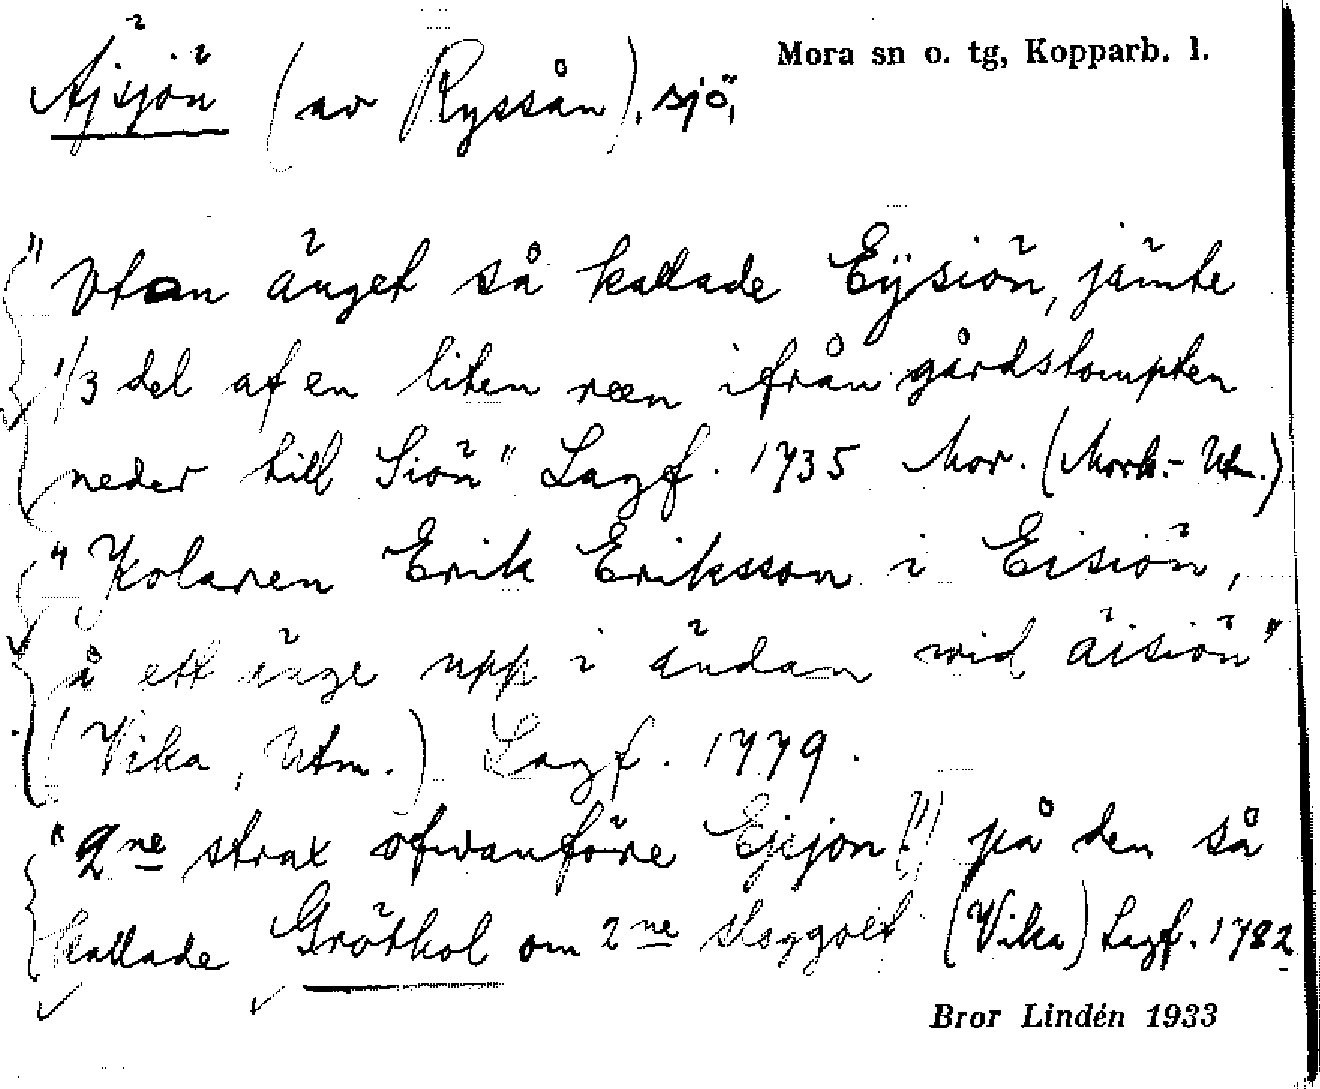 Mora sn o. tg, Kopparb. l.
Äjsjön (av Ryssån), sjö,
"Utan änget så kallade Eÿsiön, jämte
1/3 del af en liten reen ifrån gårdstompten
neder till Siön" Lagf. 1735 Mor. (Mork.- Utm.)
"Kolaren Erik Eriksson i Eisiön,
å ett änge upp i ändan wid äisiön"
(Vika, Utm.) Lagf. 1779.
"2ne strax ofwanföre Ejsjon(!) på den så
kallade Gröthol om 2ne skoggolf (Vika) Lagf. 1782
Bror Lindén 1933